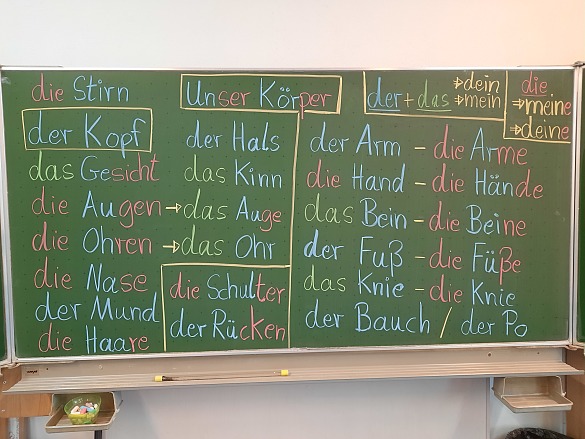 die Stirn
der Kopf
das Gesicht
die Augen → das Auge
die Ohren → das Ohr
die Nase
der Mund
die Haare
Unser Körper
der Hals
das Kinn
die Schulter
der Rücken
der + das → dein
→ mein
die
→ meine
→ deine
der Arm - die Arme
die Hand - die Hände
das Bein - die Beine
der Fuß - die Füße
das Knie - die Knie
der Bauch / der Po